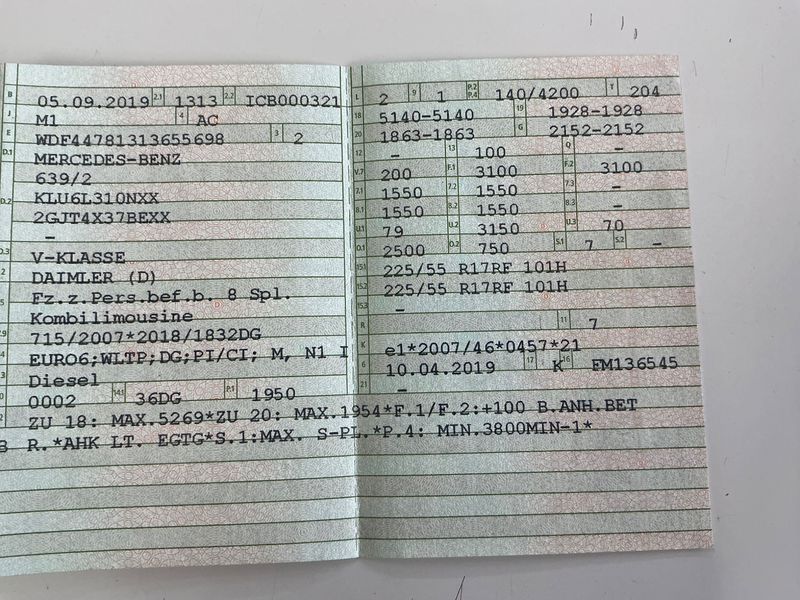 B 05.09.2019 2.1 1313 2.2 ICB000321
J M1 4 AC
E WDF44781313655698 3 2
D.1 MERCEDES-BENZ
639/2
D.2 KLU6L310NXX
2GJT4X37BEXX
–
D.3 V-KLASSE
2 DAIMLER (D)
5 Fz.z.Pers.bef.b. 8 Spl.
Kombilimousine
V.9 715/2007*2018/1832DG
EURO6;WLTP;DG;PI/CI; M, N1 I
P.3 Diesel
10 0002 14.1 36DG P.1 1950
L 2 9 1 P.2 P.4 140/4200 T 204
18 5140-5140 19 1928-1928
20 1863-1863 G 2152-2152
12 – 13 100 Q –
V.7 200 F.1 3100 F.2 3100
7.1 1550 7.2 1550 7.3 –
8.1 1550 8.2 1550 8.3 –
U.1 79 U.2 3150 U.3 70
O.1 2500 O.2 750 S.1 7 S.2 –
15.1 225/55 R17RF 101H
15.2 225/55 R17RF 101H
15.3 –
R 11 7
K e1*2007/46*0457*21
6 10.04.2019 17 K 16 FM136545
21 –
22 ZU 18: MAX.5269*ZU 20: MAX.1954*F.1/F.2:+100 B.ANH.BET
R.*AHK LT. EGTG*S.1:MAX. S-PL.*P.4: MIN.3800MIN-1*